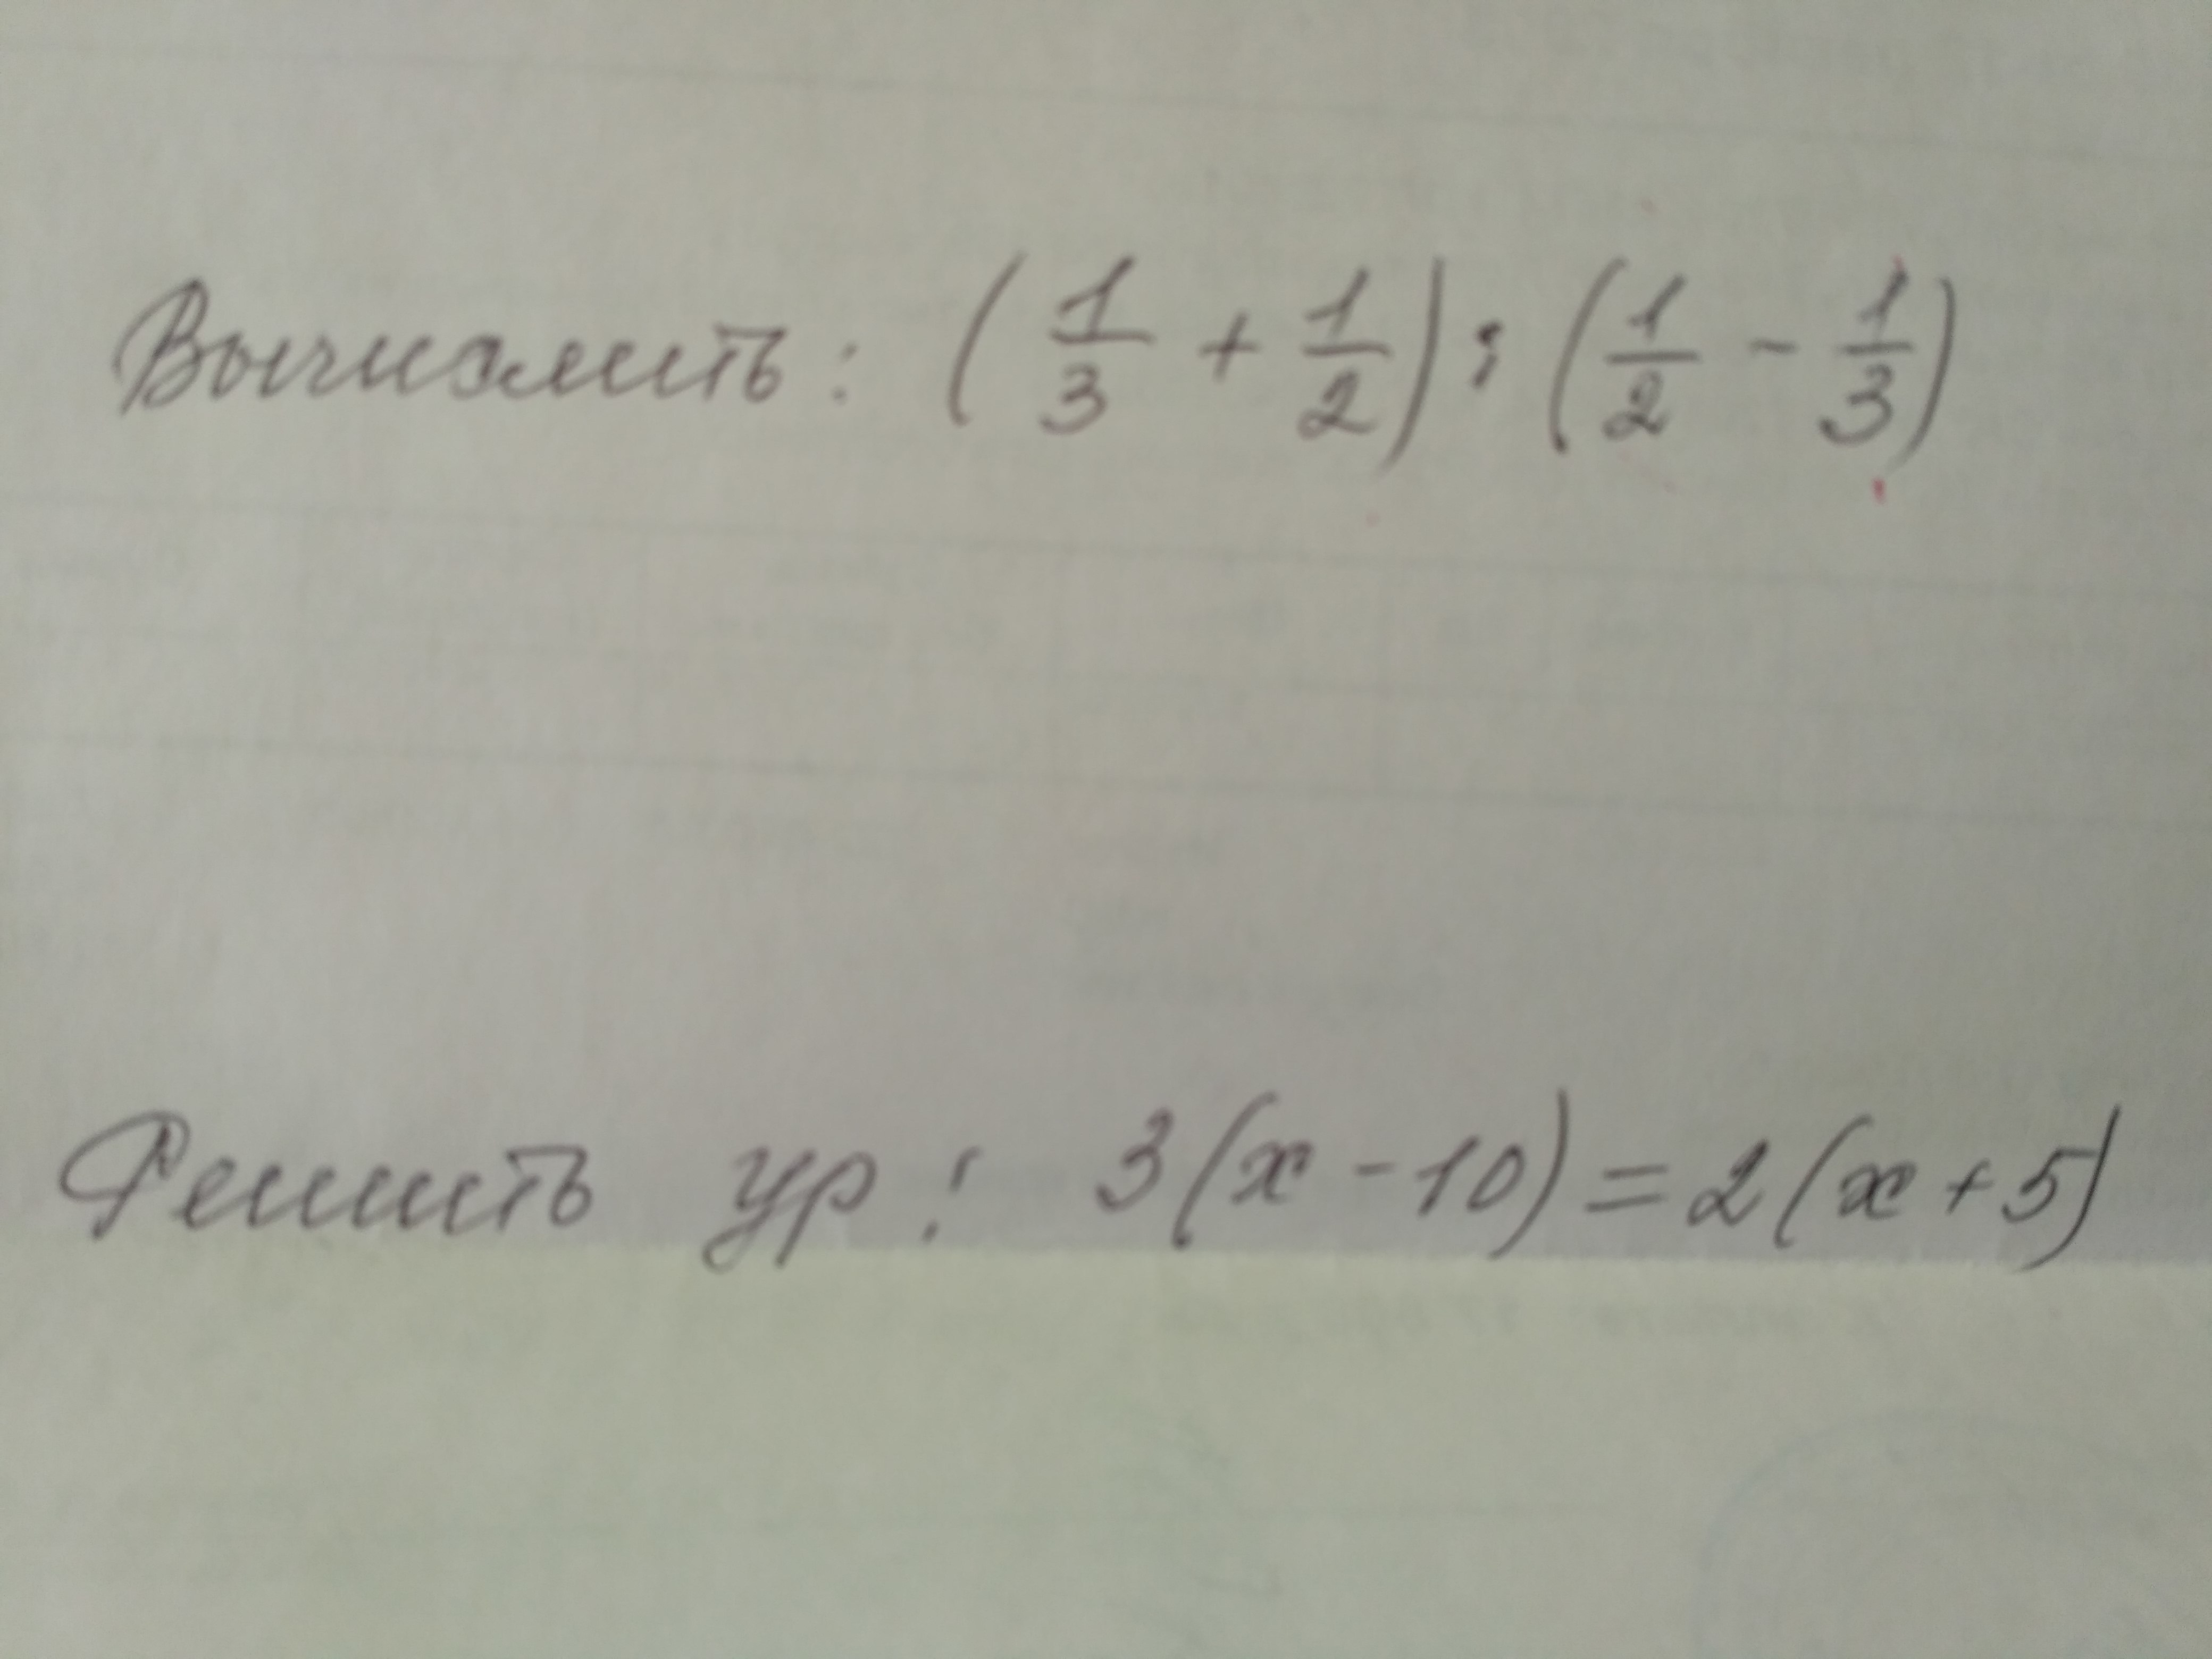 Вычислить: (1/3 + 1/2) : (1/2 - 1/3)
Решить ур: 3(x - 10) = 2(x + 5)